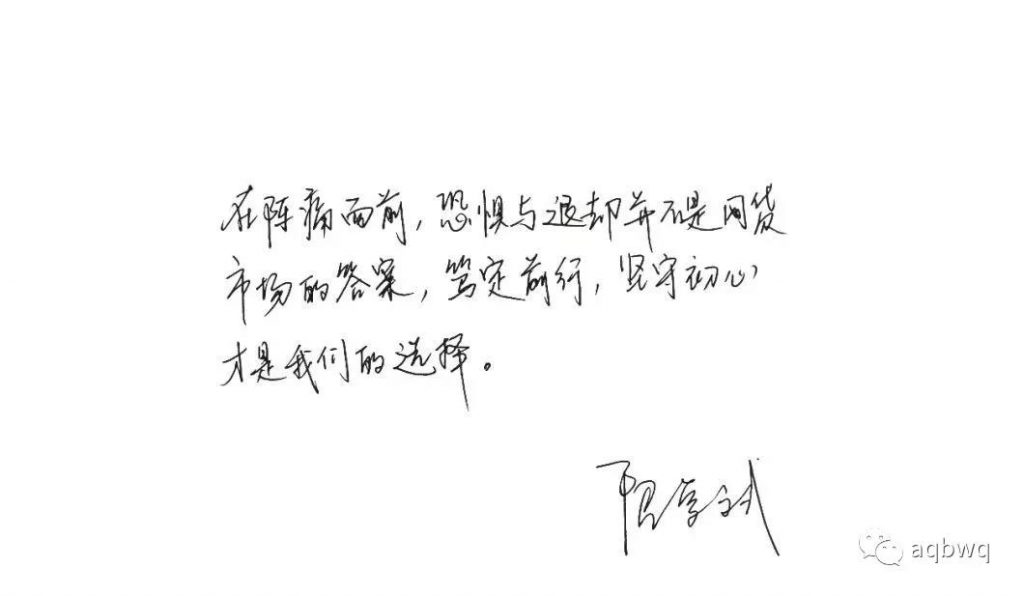 在阵痛面前，恐惧与退却并不是网贷
市场的答案，笃定前行，坚守初心
才是我们的选择。
aqbwq